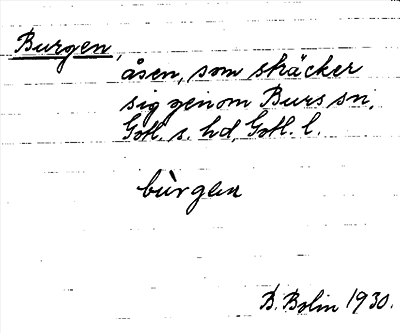 Burgen,
åsen, som sträcker
sig genom Burs sn.
Gotl. s. hd, Gotl. l.
bùrgen
B. Bolin 1930.